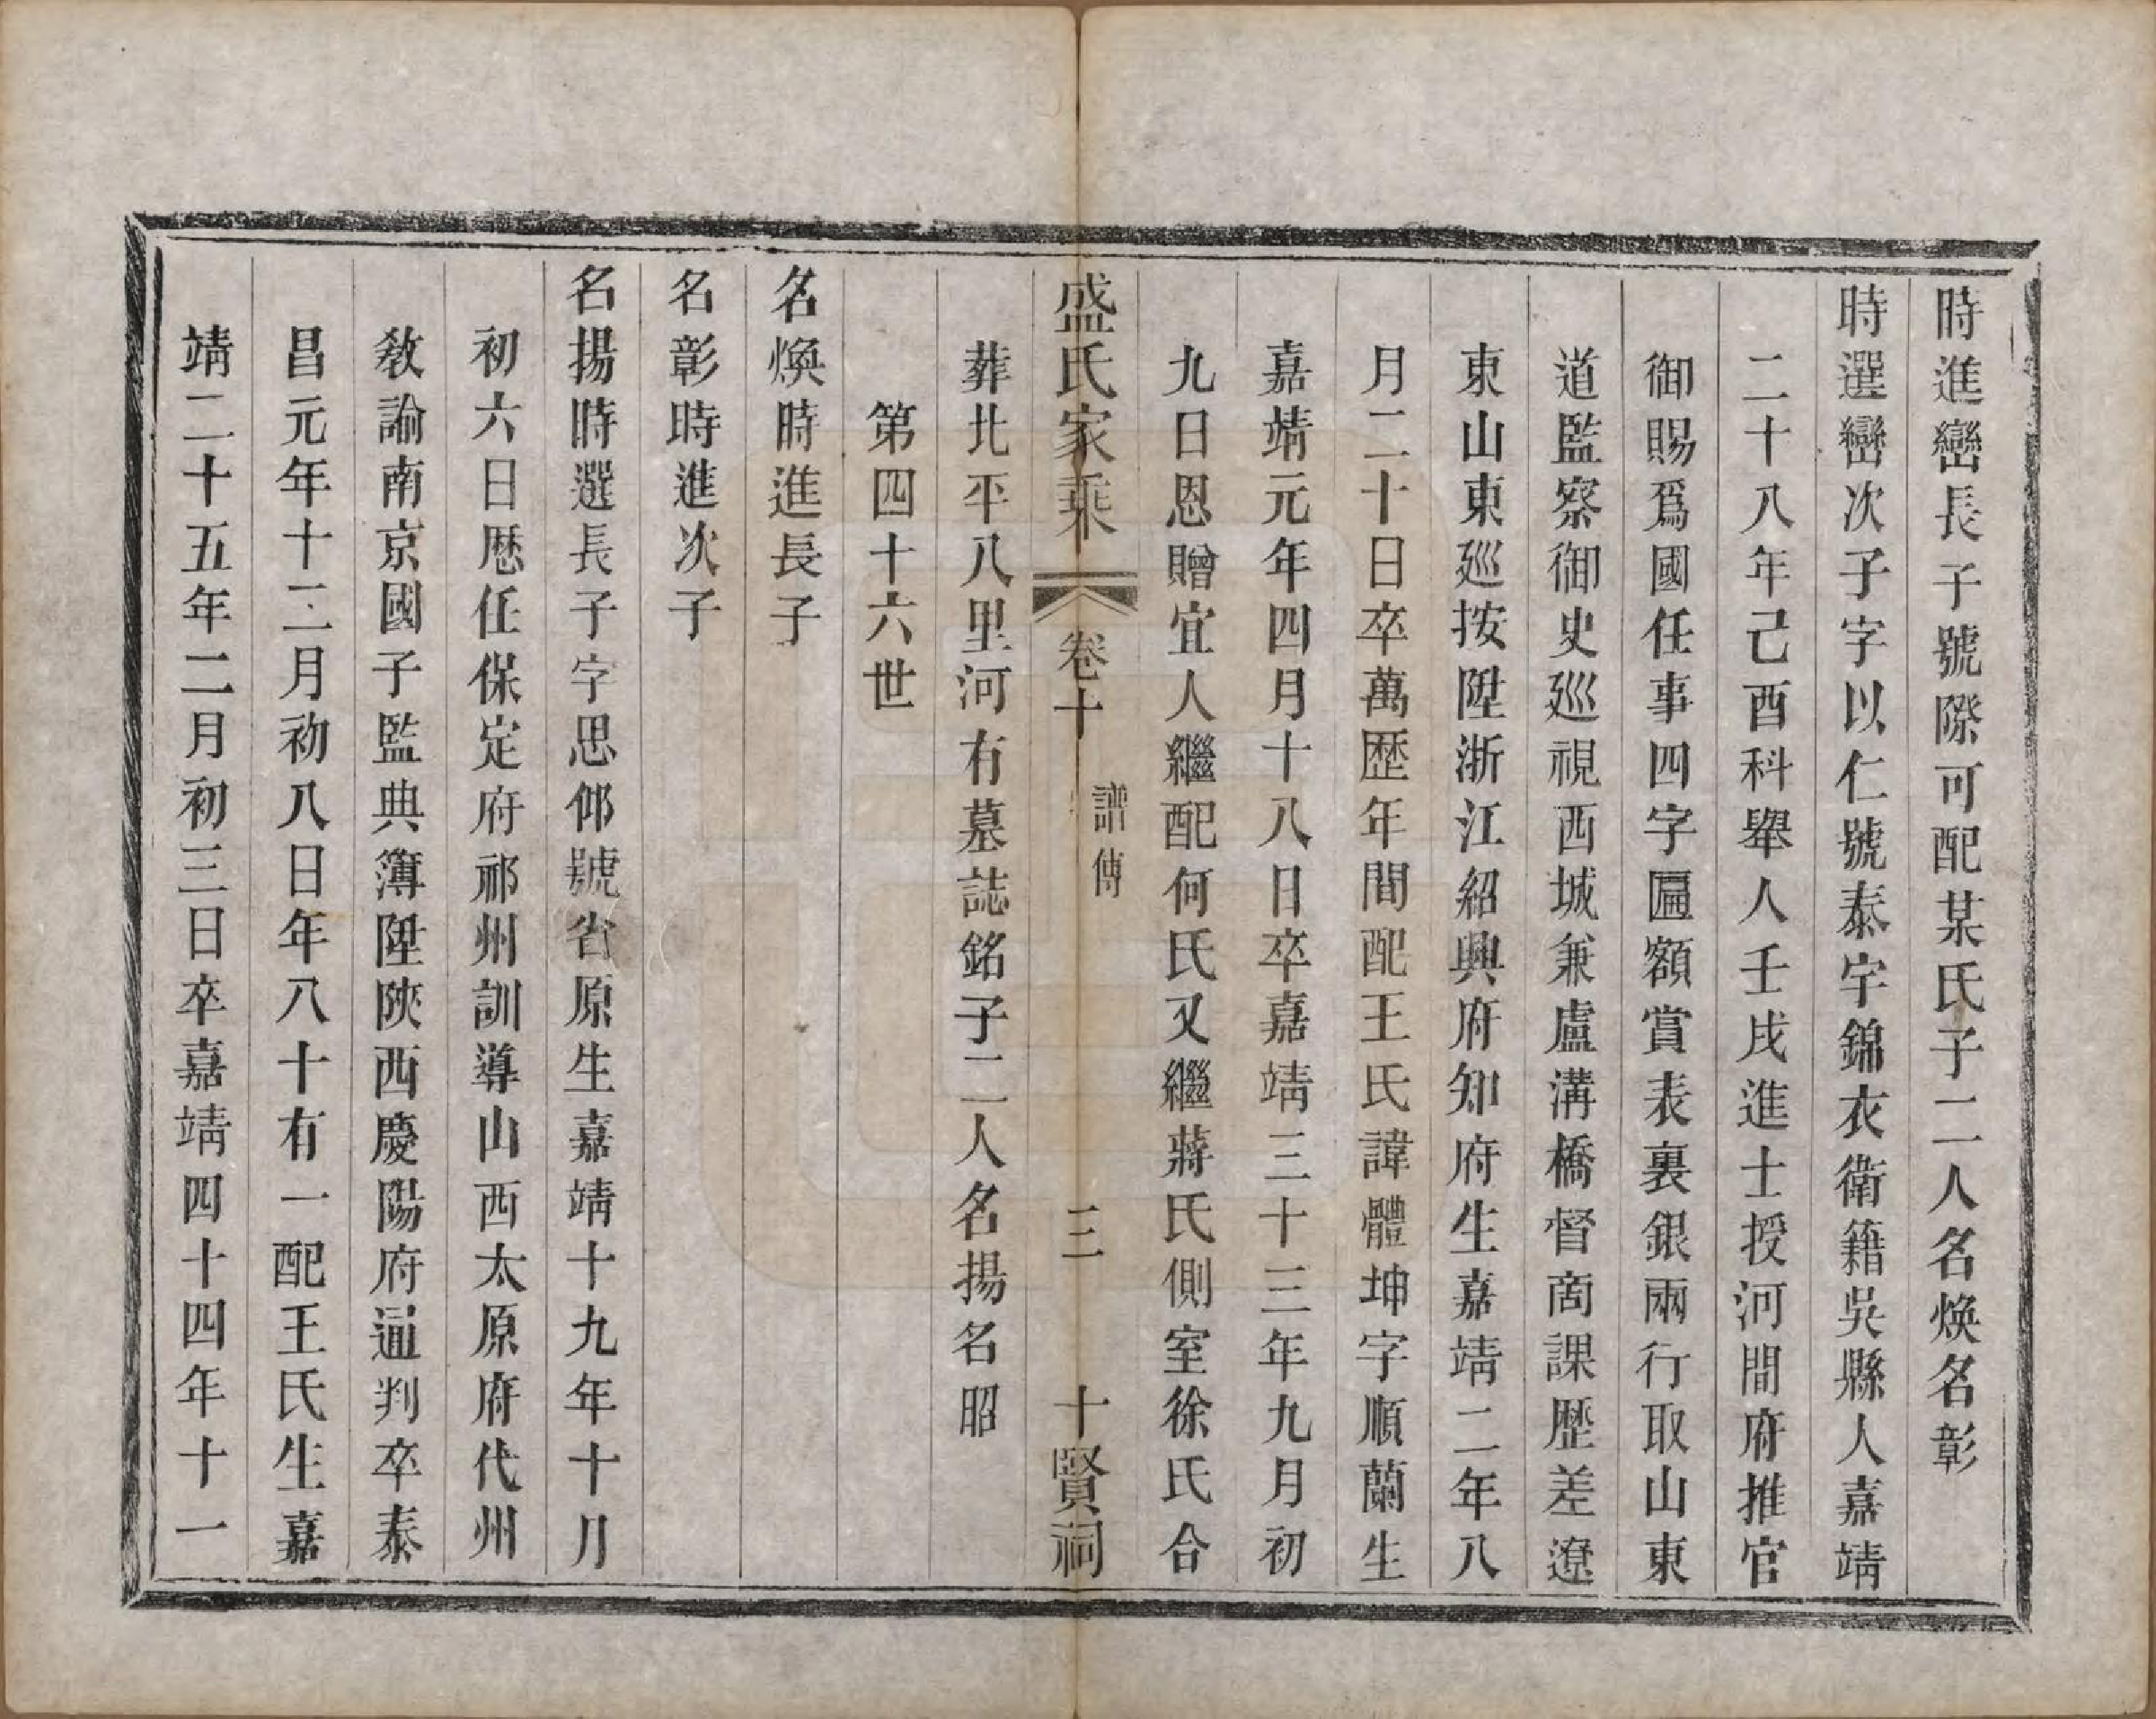 時進巒長子號際可配某氏子二人名煥名彰
時選巒次子字以仁號泰宇錦衣衛籍吳縣人嘉靖
二十八年己酉科舉人壬戌進士授河間府推官
御賜爲國任事四字匾額賞表裏銀兩行取山東
道監察御史巡視西城兼盧溝橋督啇課歷差遼
東山東巡按陞浙江紹興府知府生嘉靖二年八
月二十日卒萬歷年間配王氏諱體坤字順蘭生
嘉靖元年四月十八日卒嘉靖三十三年九月初
九日恩贈宜人繼配何氏又繼蔣氏側室徐氏合
葬北平八里河有墓誌銘子二人名揚名昭
盛氏家乘 卷十 譜傳 三 十賢祠
第四十六世
名煥時進長子
名彰時進次子
名揚時選長子字思仰號省原生嘉靖十九年十月
初六日歷任保定府祁州訓導山西太原府代州
敎諭南京國子監典簿陞陝西慶陽府通判卒泰
昌元年十二月初八日年八十有一配王氏生嘉
靖二十五年二月初三日卒嘉靖四十四年十一